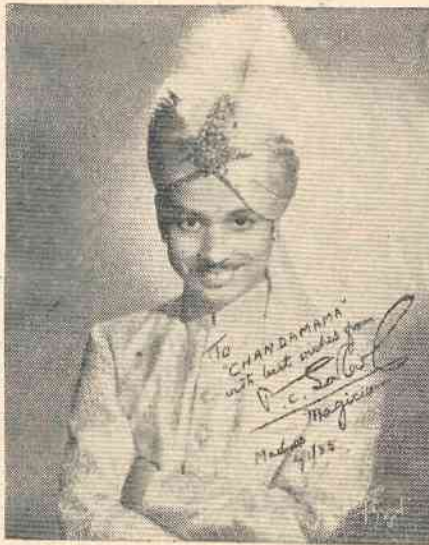 To
"CHANDAMAMA"
with best wishes from
P. C. Sorcar
Magician
Madras